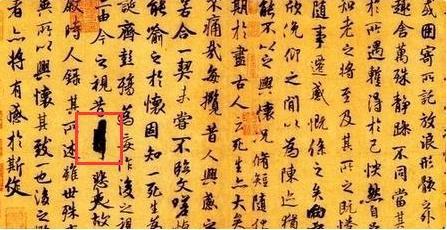 或因寄所託放浪形骸之外
趣舍萬殊靜躁不同當其
於所遇蹔得於己怏然自
知老之將至及其所之既惓
隨事遷感慨係之矣向
欣俛仰之閒以為陳迹猶
能不以之興懷況脩短隨
期於盡古人云死生亦大矣
不痛哉每攬昔人興感之
若合一契未嘗不臨文嗟悼
能喻之於懷固知一死生為
誕齊彭殤為妄作後之視
由今之視昔悲夫故
敘時人錄其所述雖世殊
異所以興懷其致一也後之
者亦將有感於斯文